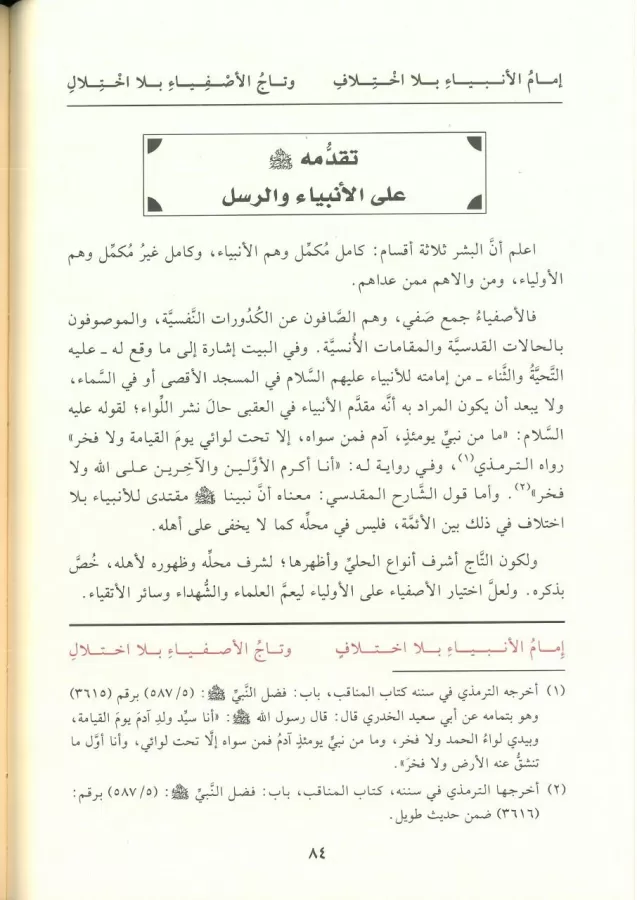 إمـامُ الأنـبـيـاءِ بـلا اخْـتِـلافِ وتـاجُ الأصْـفِـيـاءِ بـلا اخْـتِـلالِ
تقدُّمه ﷺ
على الأنبياء والرسل
اعلم أنَّ البشر ثلاثة أقسام: كامل مُكمِّل وهم الأنبياء، وكامل غيرُ مُكمِّل وهم
الأولياء، ومن والاهم ممن عداهم.
فالأصفياءُ جمع صَفي، وهم الصَّافون عن الكُدُورات النَّفسيَّة، والموصوفون
بالحالات القدسيَّة والمقامات الأُنسيَّة. وفي البيت إشارة إلى ما وقع له ـ عليه
التَّحيَّةُ والثَّناء ـ من إمامته للأنبياء عليهم السَّلام في المسجد الأقصى أو في السَّماء،
ولا يبعد أن يكون المراد به أنَّه مقدَّم الأنبياء في العقبى حالَ نشر اللِّواء؛ لقوله عليه
السَّلام: «ما من نبيٍّ يومئذٍ، آدم فمن سواه، إلا تحت لوائي يومَ القيامة ولا فخر»
رواه الترمذي(١)، وفي رواية له: «أنـا أكرم الأوَّلـين والآخِرين عـلى الله ولا
فخر»(٢). وأما قول الشَّارح المقدسي: معناه أنَّ نبينا ﷺ مقتدى للأنبياء بلا
اختلاف في ذلك بين الأئمَّة، فليس في محلِّه كما لا يخفى على أهله.
ولكون التَّاج أشرف أنواع الحليِّ وأظهرها؛ لشرف محلِّه وظهوره لأهله، خُصَّ
بذكره. ولعلَّ اختيار الأصفياء على الأولياء ليعمَّ العلماء والشُّهداء وسائر الأتقياء.
إمـامُ الأنـبـيـاءِ بـلا اخـتـلافٍ وتـاجُ الأصـفـيـاءِ بـلا اخـتـلالِ
(١) أخرجه الترمذي في سننه كتاب المناقب، باب: فضل النَّبيِّ ﷺ: (٥/ ٥٨٧) برقم (٣٦١٥)
وهو بتمامه عن أبي سعيد الخدري قال: قال رسول الله ﷺ: «أنا سيِّد ولدِ آدمَ يومَ القيامة،
وبيدي لواءُ الحمد ولا فخر، وما من نبيٍّ يومئذٍ آدمُ فمن سواه إلَّا تحت لوائي، وأنا أوَّل ما
تنشقُّ عنه الأرض ولا فخرَ».
(٢) أخرجها الترمذي في سننه، كتاب المناقب، باب: فضل النَّبيِّ ﷺ: (٥/ ٥٨٧) برقم:
(٣٦١٦) ضمن حديث طويل.
٨٤